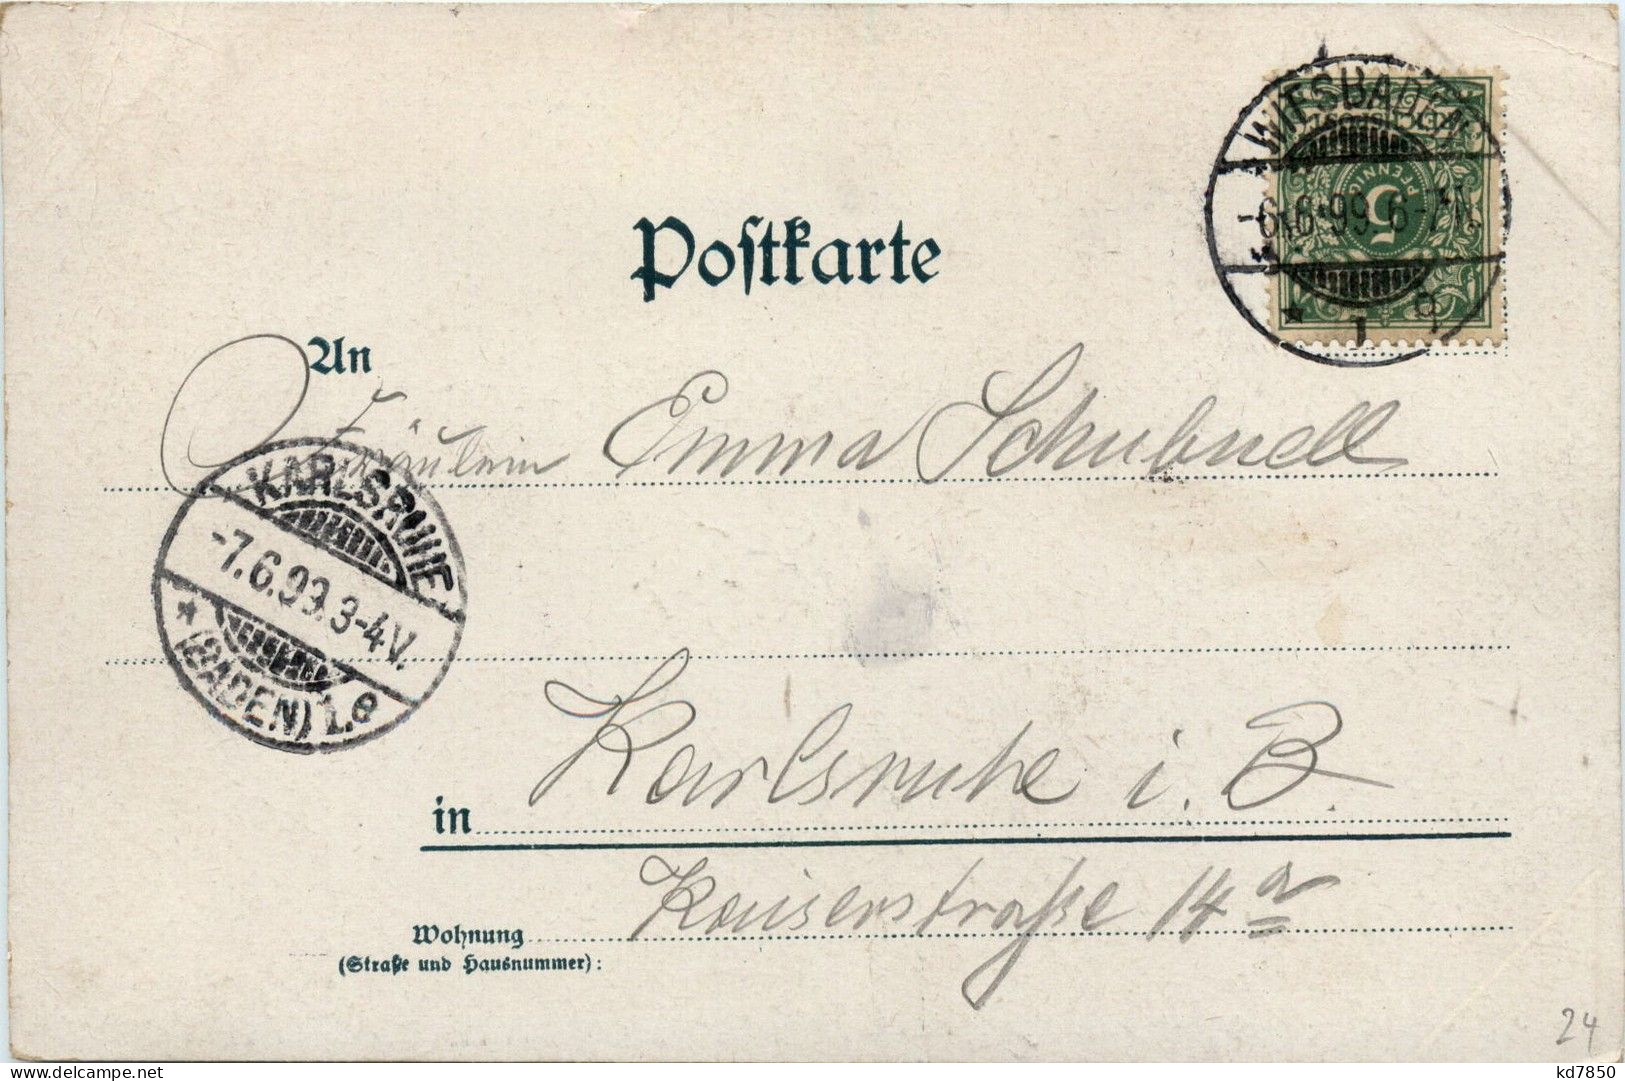 WIESBADEN
-6.6.99.6-7N.
* 1 g
REICHSPOST
5
PFENNIG
Postkarte
An
Fräulein Emma Schubnell
KARLSRUHE
-7.6.99.3-4V.
* (BADEN) 1.e
in Karlsruhe i. B.
Kaiserstraße 14 a
Wohnung
(Straße und Hausnummer):
24
kd7850